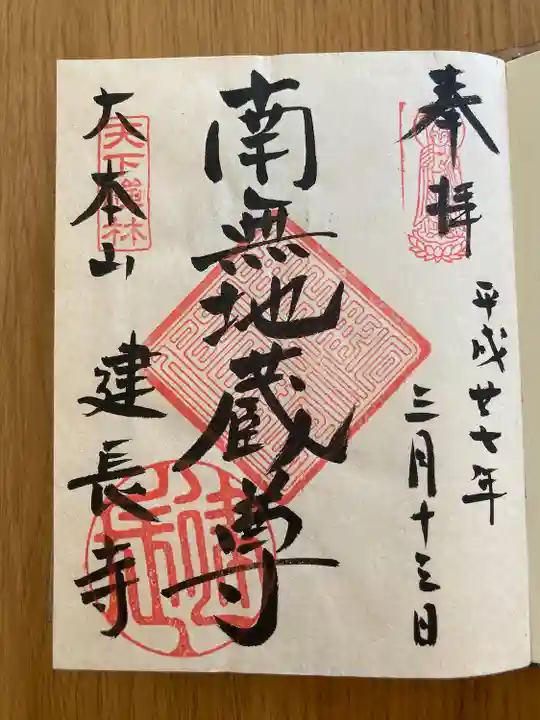 奉拝
平成廿七年
三月十三日
南無地蔵尊
大本山
天下禅林
建長寺